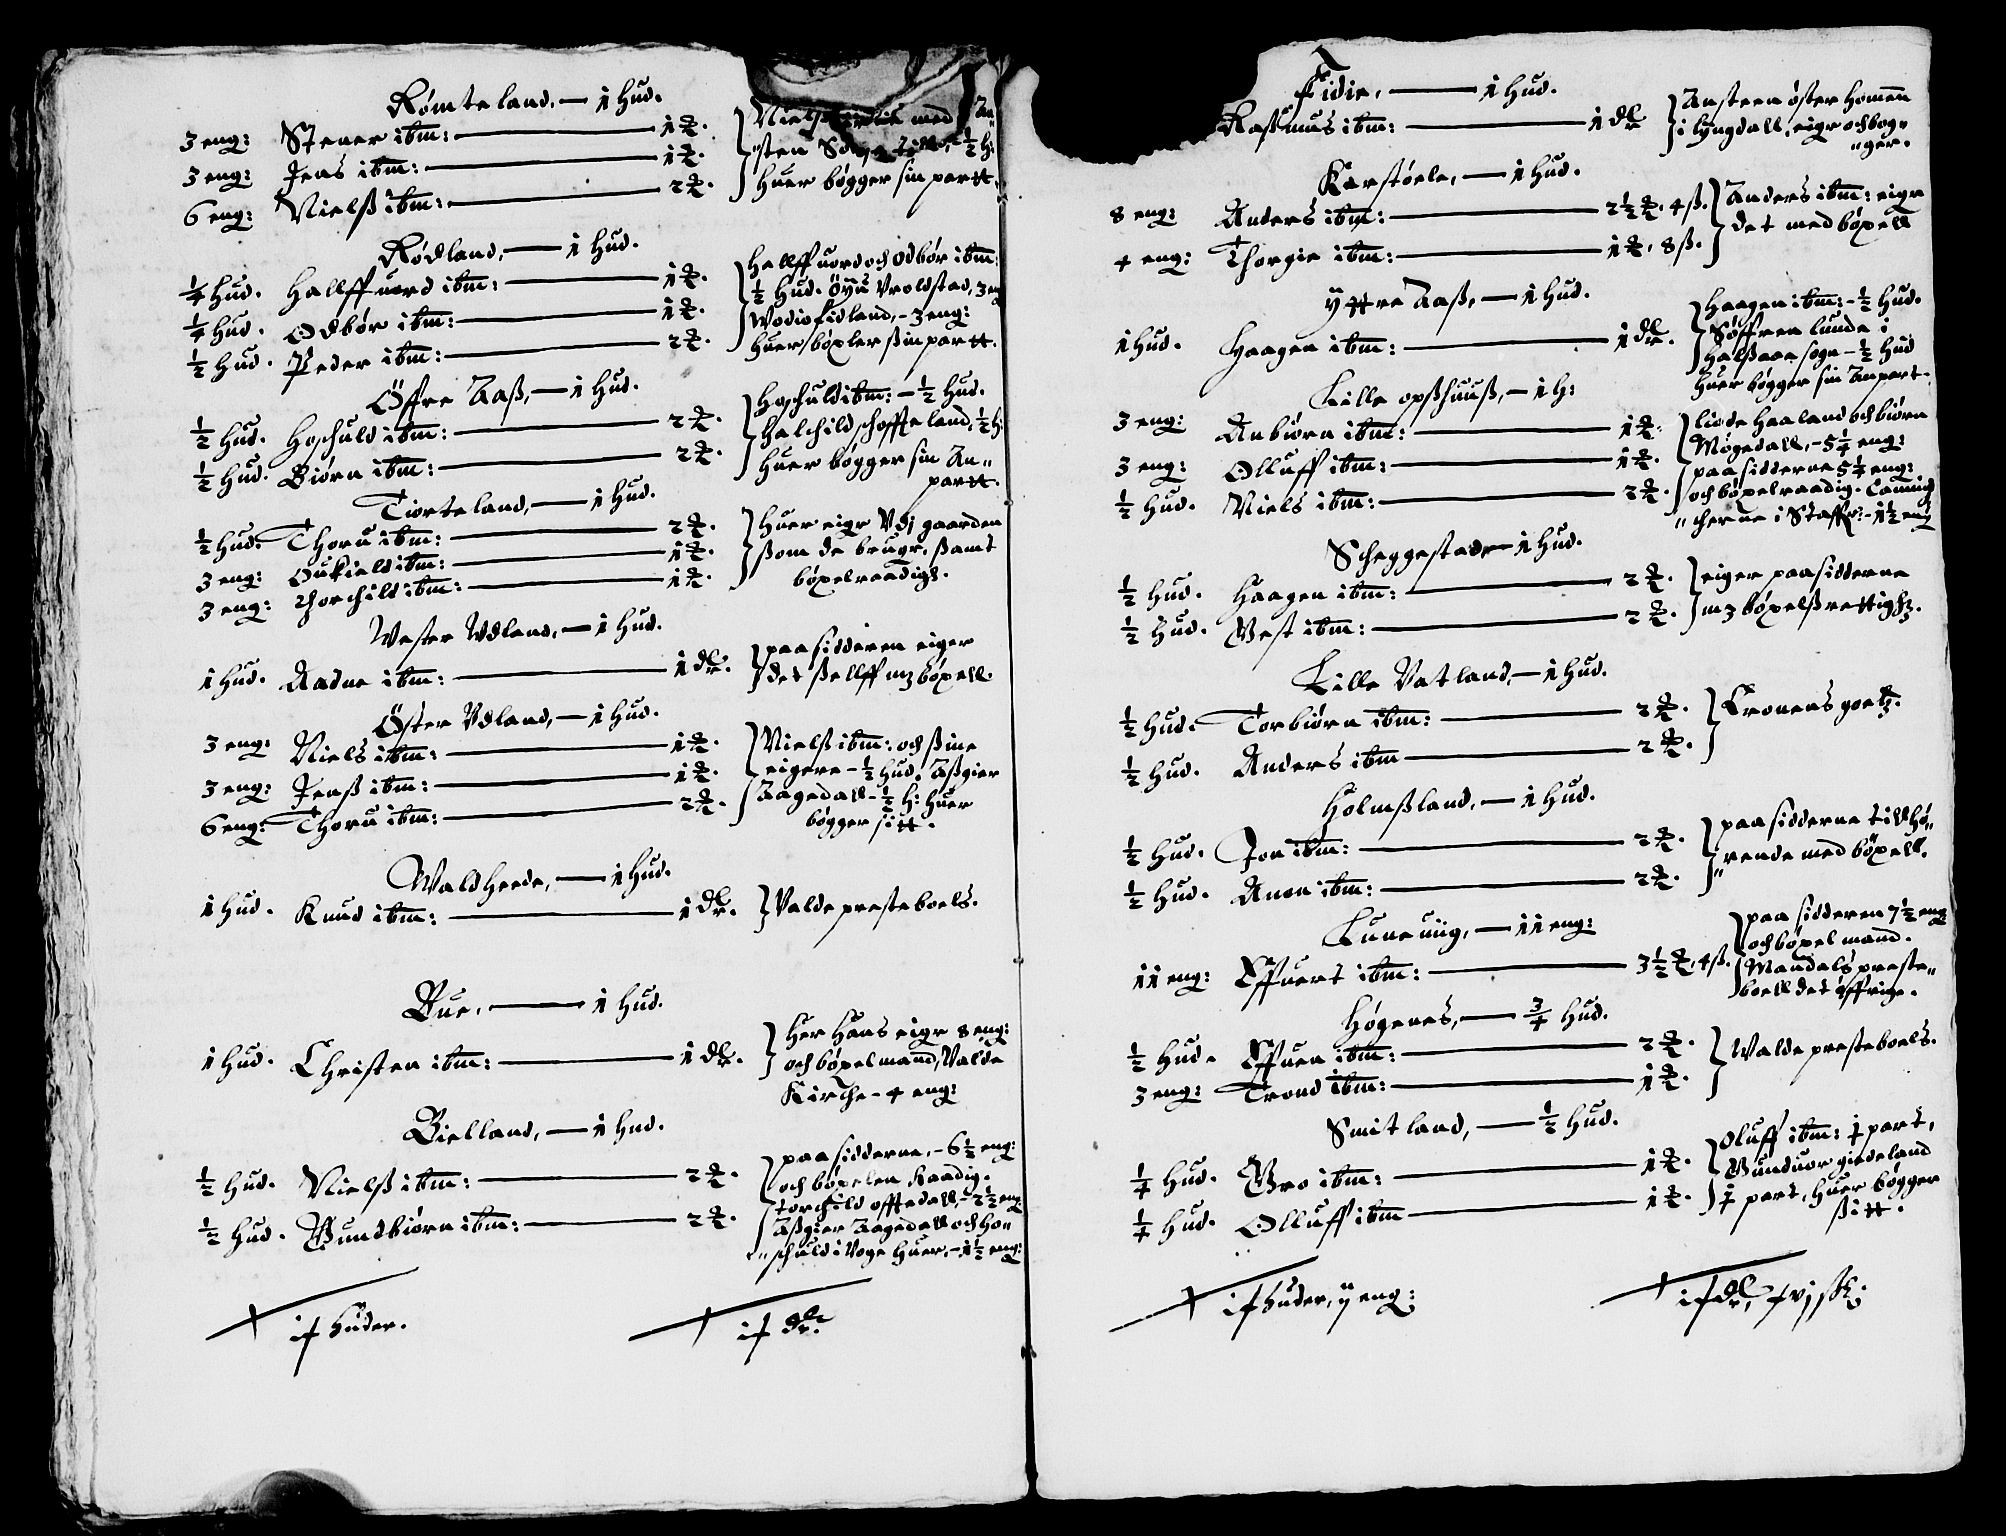 Rømteland, — 1 Hud.
3 eng: Stener ibm: — 1 ℔.
3 eng: Jens ibm: — 1 ℔.
6 eng: Nielß ibm: — 2 ℔.
Niels med An-
sten till, 1/2 h:
huer bøgger sin partt.
Rødland, — 1 Hud.
1/4 Hud. Hallffuord ibm: — 1 ℔.
1/4 Hud. Odbør ibm: — 1 ℔.
1/2 Hud. Peder ibm: — 2 ℔.
Hallffuord och Odbør ibm:
1/2 Hud. Öyü Vroldstad, 3 eng
Wodiofidland, - 3 eng:
huer bøxler ßin partt.
Öffre Aaß, — 1 Hud.
1/2 Hud. Hoschuld ibm: — 2 ℔.
1/2 Hud. Biørn ibm: — 2 ℔.
Hoschuld ibm: - 1/2 Hud.
Halchild schoffteland, 1/2 h:
Huer bøgger sin An-
partt.
Tiorteland, — 1 Hud.
1/2 Hud. Thoru ibm: — 2 ℔.
3 eng: Oukield ibm: — 1 ℔.
3 eng: Thorchild ibm: — 1 ℔.
Huer eigr Vdj gaarden
ßom de brugr, ßamt
bøxelraadigh.
Wester Vdland, — 1 Hud.
1 Hud. Aadne ibm: — 1 dlr.
paasidderen eiger
det ßellff mz bøxell.
Öster Vdland, — 1 Hud.
3 eng: Niels ibm: — 1 ℔.
3 eng: Jenß ibm: — 1 ℔.
6 eng: Thoru ibm: — 2 ℔.
Nielß ibm: och ßine
eigere - 1/2 Hud. Aßgier
Aagedall - 1/2 h: huer
bøgger sitt.
Waldheede, — 1 Hud.
1 Hud. Knud ibm: — 1 dlr.
Valde presteboels.
Bue, — 1 Hud.
1 Hud. Christen ibm: — 1 dlr.
Her Hans eigr 8 eng:
och bøxelmand, Valde
Kirche - 4 eng:
Bielland, — 1 Hud.
1/2 Hud. Nielß ibm: — 2 ℔.
1/2 Hud. Gundbiørn ibm: — 2 ℔.
paasidderne, - 6 1/2 eng:
och bøxelen Raadig.
torchild offtedall, - 2 1/2 eng
Aßgier Aagedall och Ho-
"schuld i Voge Huer, - 1 1/2 eng:
if Huder.
if dlr.
Fidie, — 1 Hud.
Raßmus ibm: — 1 dlr
Ansteen öster Homen
i lyngdall, eigr och bog-
"ger.
Karstöele, — 1 Hud.
8 eng: Anders ibm: — 2 1/2 ℔. 4 ß.
4 eng: Thorgie ibm: — 1 ℔. 8 ß.
Anders ibm: eigr
det med bøxell
Yttre Aaß, — 1 Hud.
1 Hud. Haagen ibm: — 1 dlr.
Haagen ibm: - 1/2 Hud.
Söffren lunde i
Halßaae sogn - 1/2 Hud
Huer bøgger sin Anpart.
Lille opßhuuß, — 1 H:
3 eng: Anbiørn ibm: — 1 ℔.
3 eng: Olluff ibm: — 1 ℔.
1/2 Hud. Niels ibm: — 2 ℔.
liode Haaland och biørn
Møgedall, - 5 1/4 eng:
paasidderne 5 1/4 eng:
och bøxelraadig. Canniche
"cherne i Staffr: - 1 1/2 eng
Scheggestad — 1 Hud.
1/2 Hud. Haagen ibm: — 2 ℔.
1/2 Hud. Vest ibm: — 2 ℔.
eiger paasidderne
mz bøxelßrettigh.
Lille Vatland, — 1 Hud.
1/2 Hud. Torbiørn ibm: — 2 ℔.
1/2 Hud. Anders ibm — 2 ℔.
Cronens goetz.
Holmßland, — 1 Hud.
1/2 Hud. Jon ibm: — 2 ℔.
1/2 Hud. Anen ibm: — 2 ℔.
paasidderne tillhø-
"rende med bøxell.
Kuneuiig, — 11 eng:
11 eng: Effuert ibm: — 3 1/2 ℔. 4 ß.
paasidderen 7 1/2 eng
och bøxelmand.
Mandals preste-
boell det øffrige.
Høgenes, — 3/4 Hud.
1/2 Hud. Effuen ibm: — 2 ℔.
3 eng: Trond ibm: — 1 ℔.
Valde presteboels.
Smitland, — 1/2 Hud.
1/4 Hud. Gro ibm: — 1 ℔.
1/4 Hud. Olluff ibm — 1 ℔.
Oluff ibm: f part,
Gunduor giedeland
f part, Huer bøgger
ßitt.
if Huder, ij eng:
if dlr, fvj ßk: